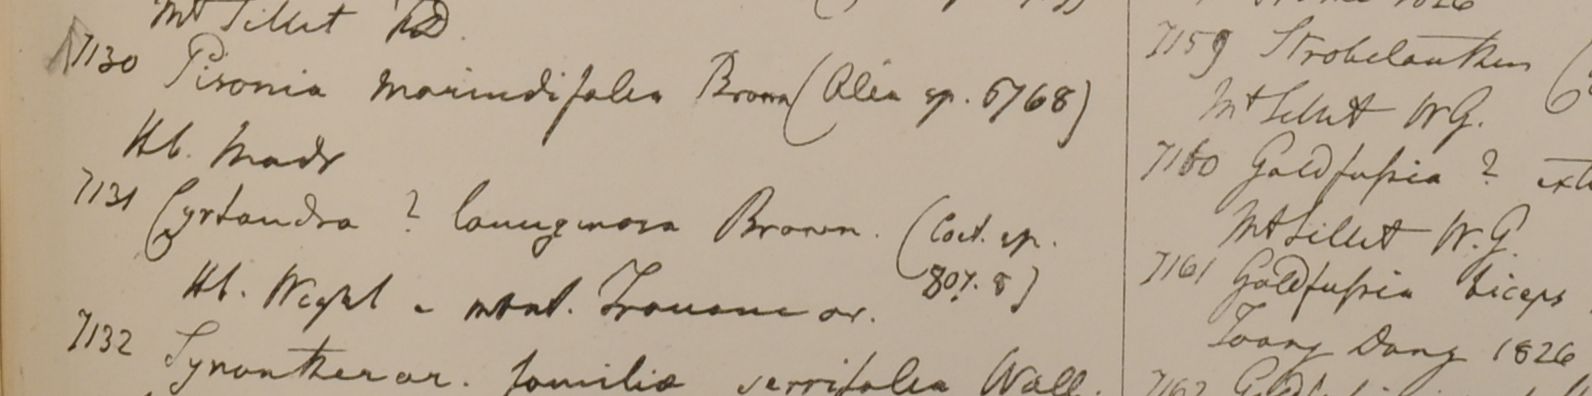 Mt Sillet
7130 Pisonia morindifolia Brown (Olea sp. 6768)
Hb. Madr
7131 Cyrtandra ? lanuginosa Brown. (Coct. sp.
807. 8)
Hb. Wight e mont. Travancor.
7132 Synantherar. familiæ serrifolia Wall.
1826
7159 Strobelanthes (
Mt Sillet W.G.
7160 Goldfussia ? ext
Mt Sillet W.G.
7161 Goldfussia biceps
Toong Dong 1826
7162